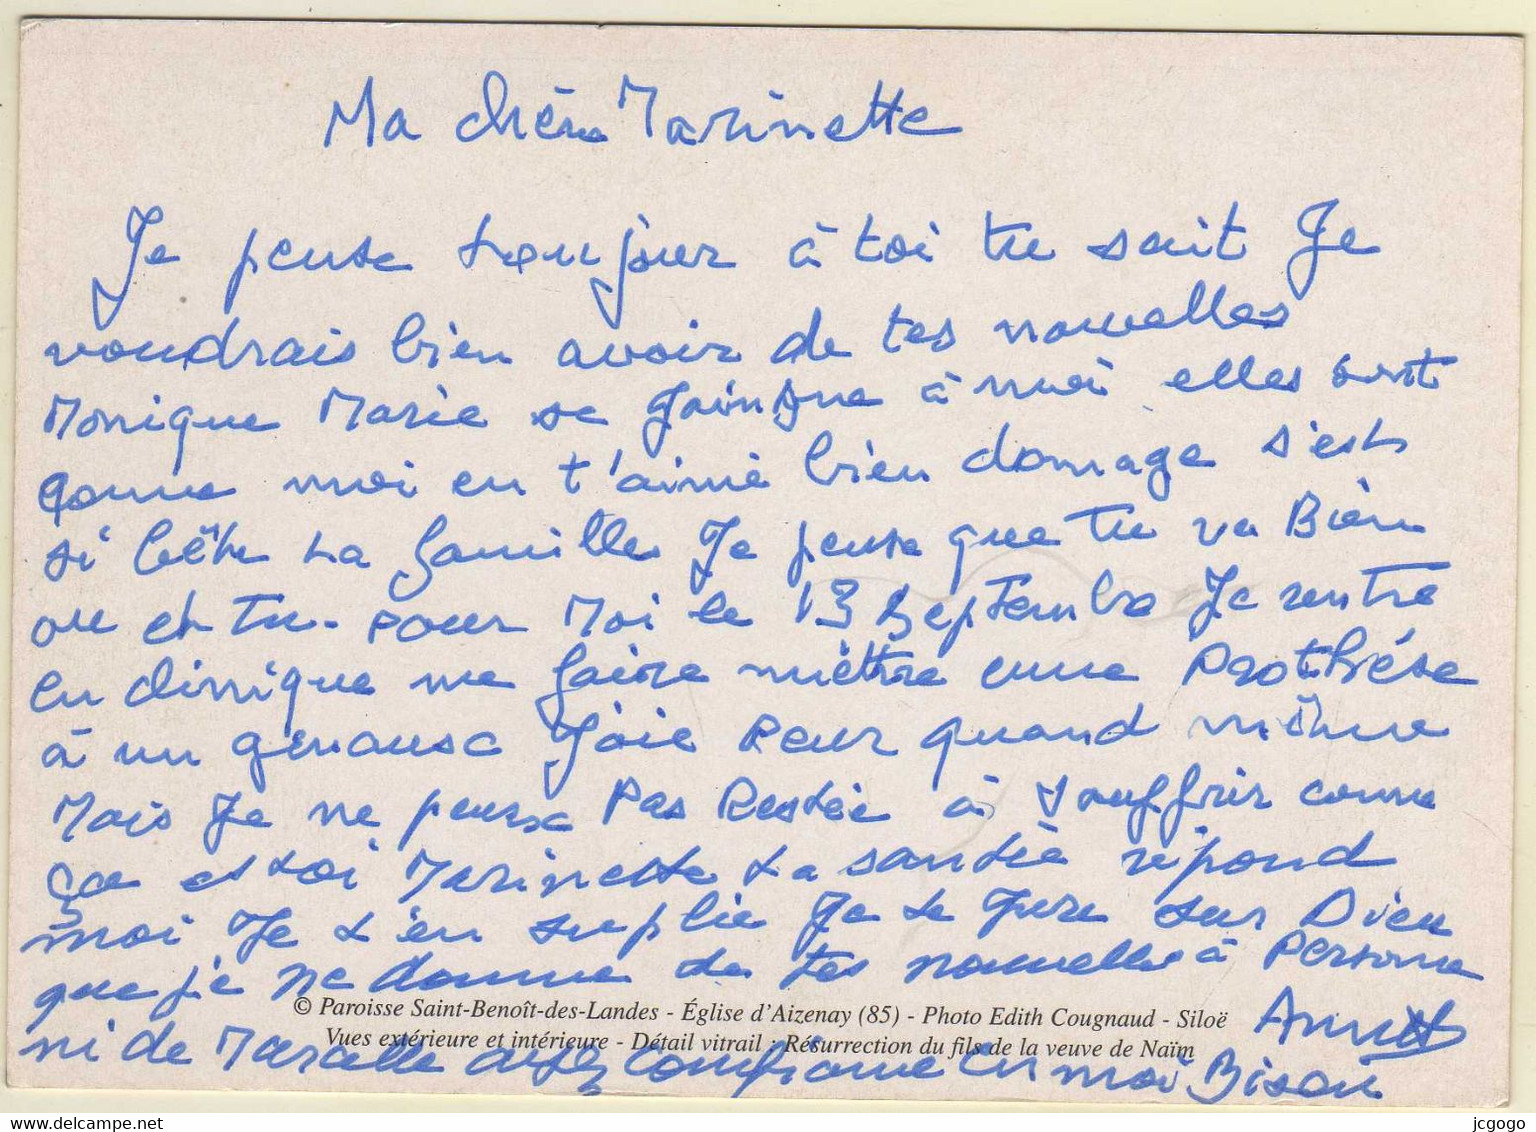 Ma chère Marinette
Je pense toujour à toi tu sait Je
voudrais bien avoir de tes nouvelles
Monique Marie se joingne à moi elles sont
comme moi on t'aime bien domage s'est
si bête ta famille Je pense que tu va Bien
ou et tu. pour Moi le 13 septembre Je rentre
en clinique me faire mettre une Prothése
à un genouse J'aie peur quand même
Mais Je ne peux Pas Restée à souffrir comme
ça et toi Marinette ta santée répond
moi Je t'en suplie Je te Jure sur Dieu
que je ne donne de tes nouvelles à Personne
© Paroisse Saint-Benoît-des-Landes - Église d'Aizenay (85) - Photo Edith Cougnaud - Siloë
Vues extérieure et intérieure - Détail vitrail : Résurrection du fils de la veuve de Naïm
ni de confiance en moi Bisou
www.delcampe.net
jcgogo